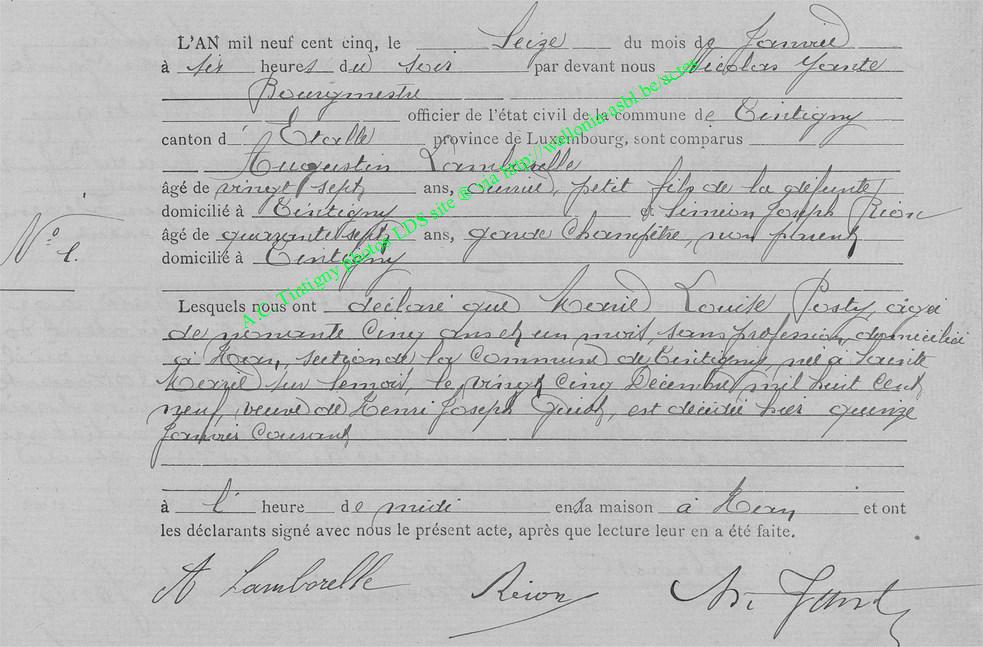 L'AN mil neuf cent cinq, le Seize du mois de Janvier
à six heures du soir par devant nous Nicolas Yante
Bourgmestre
officier de l'état civil de la commune de Tintigny
canton d' Etalle province de Luxembourg, sont comparus
Augustin Lamborelle
âgé de vingt sept ans, ouvrier, petit fils de la défunte
domicilié à Tintigny & Siméon Joseph Réion
âgé de quarante sept ans, garde champêtre, non parent
domicilié à Tintigny
N° 1.
Lesquels nous ont déclaré que Marie Louise Posty, agée
de nonante cinq ans et un mois, sans profession, domiciliée
à Han, section de la Commune de Tintigny, née à Sainte
Marie sur Semois, le vingt cinq Décembre mil huit cent
neuf, veuve de Henri Joseph, est décédée hier quinze
Janvier Courant
à l' heure de midi en sa maison à Han et ont
les déclarants signé avec nous le présent acte, après que lecture leur en a été faite.
A Lamborelle Réion
A.C. Tintigny photos LDS site ® via http://wallonia-asbl.be/actes